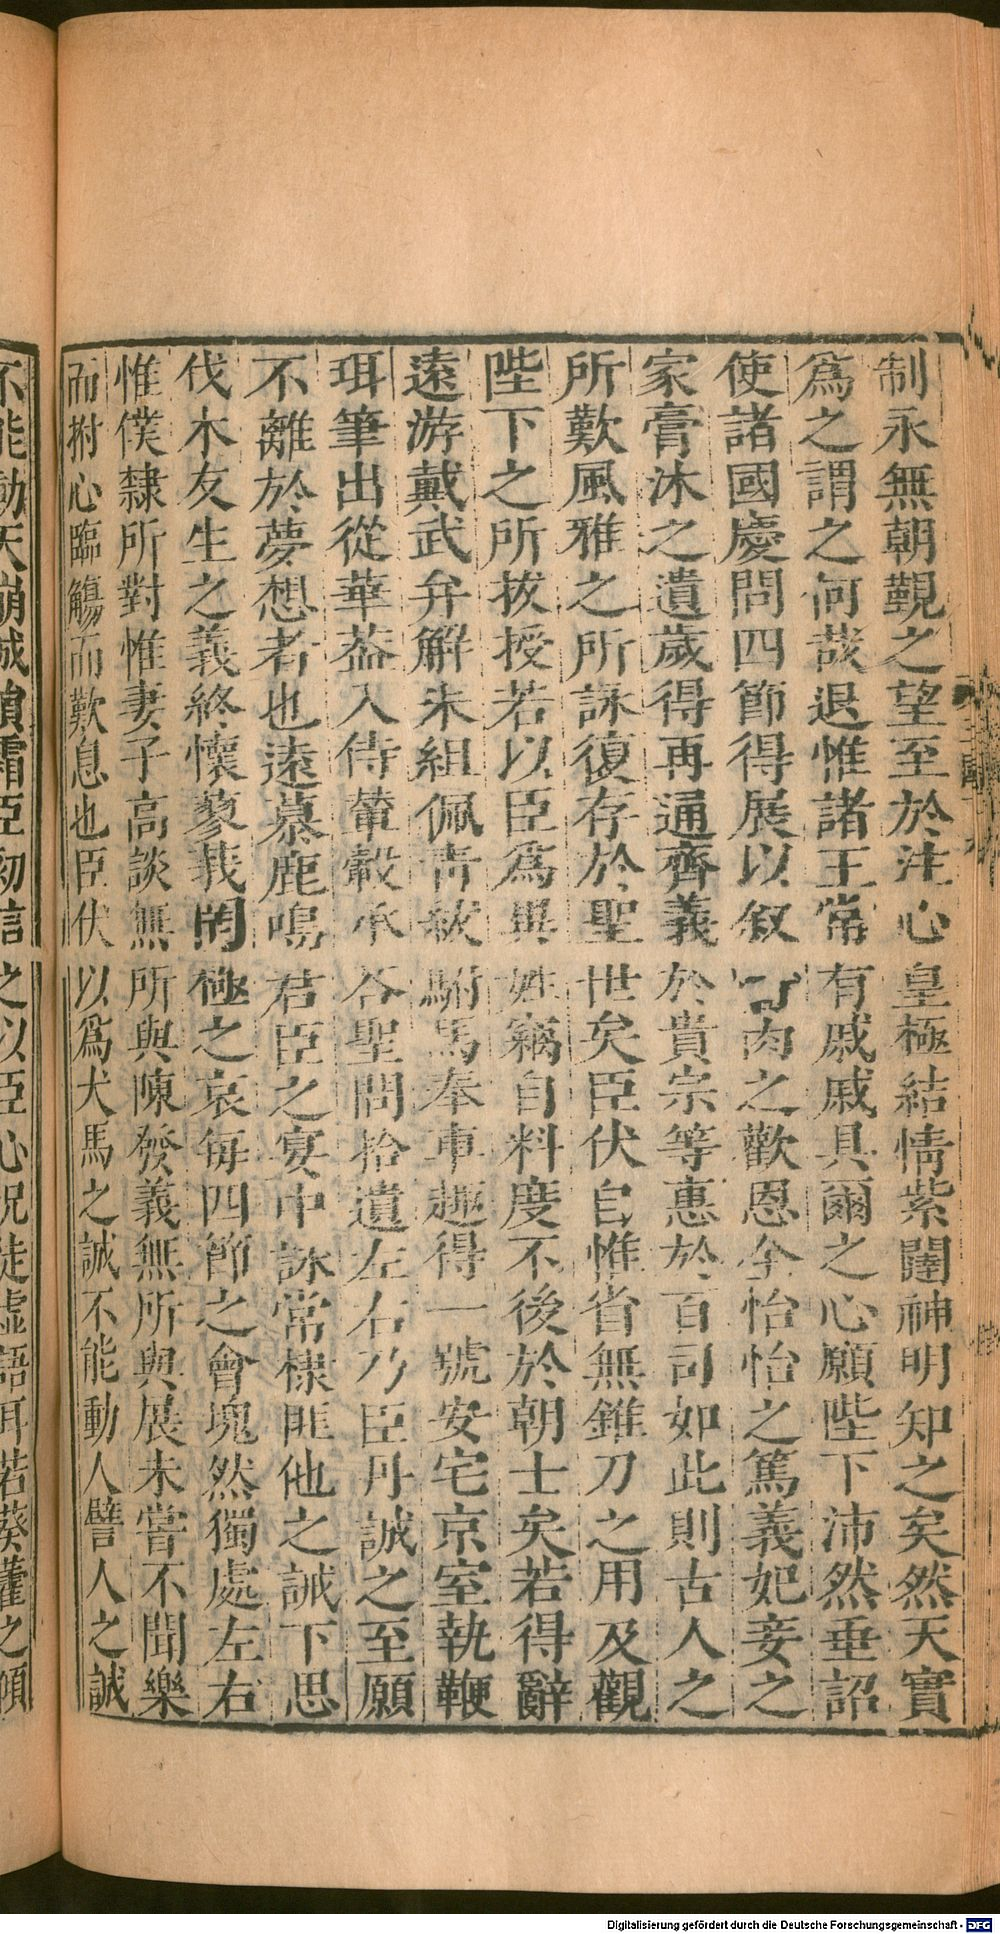 制永無朝覲之望至於注心皇極結情紫闥神明知之矣然天實
爲之謂之何哉退惟諸王常有戚戚具爾之心願陛下沛然垂詔
使諸國慶問四節得展以叙骨肉之歡恩全怡怡之篤義妃妾之
家膏沐之遺歲得再通齊義於貴宗等惠於百司如此則古人之
所歎風雅之所詠復存於聖世矣臣伏自惟省無錐刀之用及觀
陛下之所拔授若以臣爲異姓竊自料度不後於朝士矣若得辭
遠游戴武弁解朱組佩青紱駙馬奉車趣得一號安宅京室執鞭
珥筆出從華葢入侍輦轂承答聖問拾遺左右乃臣丹誠之至願
不離於夢想者也遠慕鹿鳴君臣之宴中詠常棣匪他之誡下思
伐木友生之義終懷蓼莪罔極之哀每四節之會塊然獨處左右
惟僕隸所對惟妻子高談無所與陳發義無所與展未嘗不聞樂
而拊心臨觴而歎息也臣伏以爲犬馬之誠不能動人譬人之誠
不能動天崩城隕霜臣初信之以臣心况徒虛語耳若葵藿之傾
Digitalisierung gefördert durch die Deutsche Forschungsgemeinschaft - DFG